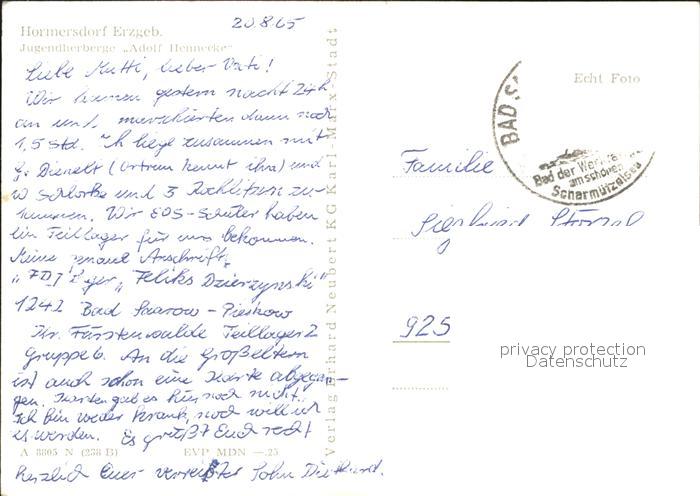 20.8.65
Hormersdorf Erzgeb.
Jugendherberge „Adolf Hennecke“
Liebe Mutti, lieber Vati!
Wir kamen gestern nacht 24h
an und marschierten dann noch
1,5 Std. Ich liege zusammen mit
Dienelt (Ortrun kennt ihn) und
W. und 3 Rochlitzern zu-
sammen. Wir EOS-Schüler haben
ein Teillager für uns bekommen.
Meine Anschrift:
„FDJ Lager „Feliks Dzierzynski“
1242 Bad Saarow-Pieskow
Kr. Fürstenwalde Teillager 2
Gruppe 6. An die Großeltern
ist auch schon eine Karte abgegan-
gen. Karten gab es hier noch nicht.
Ich bin weder krank, noch will ich
es werden. Es grüßt Euch recht
A 8805 N (238 B) EVP MDN —.25
herzlich Euer verreister Sohn
Verlag Erhard Neubert KG Karl-Marx-Stadt
Echt Foto
BAD SA
Bad der Werktätigen
am schönen
Scharmützelsee
Familie
925
privacy protection
Datenschutz